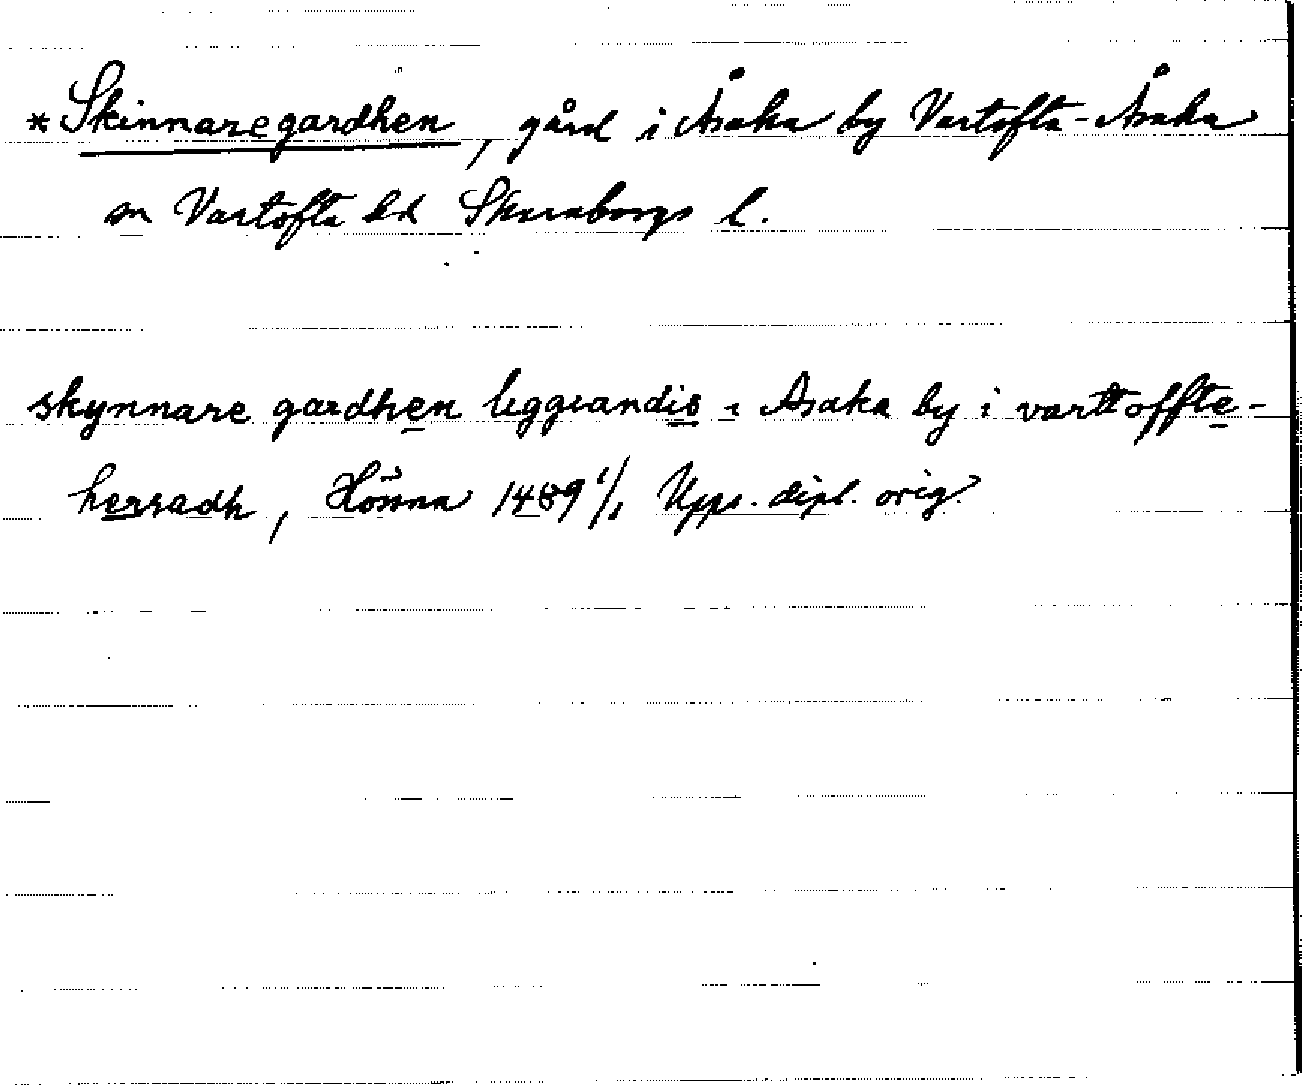 *Skinnaregardhen, gård i Åsaka by Vartofta-Åsaka
sn Vartofta hd Skaraborgs l.
skynnare gardhen liggiandis i Asaka by i varttoffte-
herradh, Hömna 1489 1/1 Upps. dipl. orig.